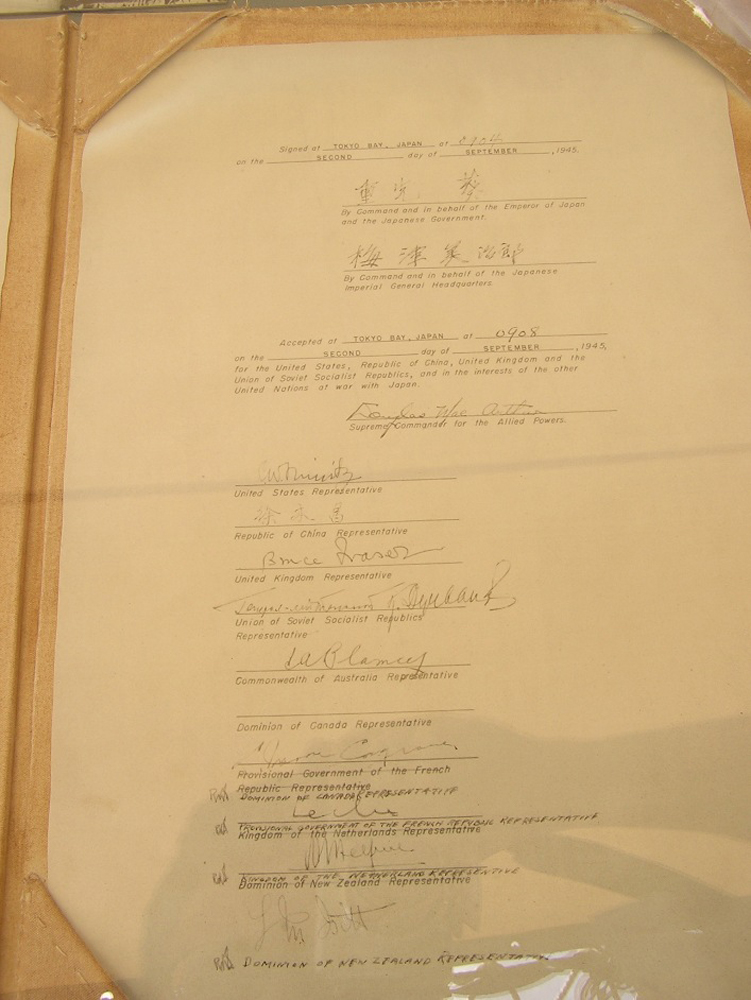 Signed at TOKYO BAY, JAPAN at 0904
on the SECOND day of SEPTEMBER, 1945.
重光 葵
By Command and in behalf of the Emperor of Japan
and the Japanese Government.
梅津美治郎
By Command and in behalf of the Japanese
Imperial General Headquarters.
Accepted at TOKYO BAY, JAPAN at 0908
on the SECOND day of SEPTEMBER, 1945,
for the United States, Republic of China, United Kingdom and the
Union of Soviet Socialist Republics, and in the interests of the other
United Nations at war with Japan.
Douglas MacArthur
Supreme Commander for the Allied Powers.
CWNimitz
United States Representative
徐永昌
Republic of China Representative
Bruce Fraser
United Kingdom Representative
Union of Soviet Socialist Republics
Representative
TaBlamey
Commonwealth of Australia Representative
Dominion of Canada Representative
Moore Cosgrave
Provisional Government of the French
Republic Representative
DOMINION OF CANADA REPRESENTATIVE
Leclerc
PROVISIONAL GOVERNMENT OF THE FRENCH REPUBLIC REPRESENTATIVE
Kingdom of the Netherlands Representative
Helfrich
KINGDOM OF THE NETHERLAND REPRESENTATIVE
Dominion of New Zealand Representative
Isitt
DOMINION OF NEW ZEALAND REPRESENTATIVE